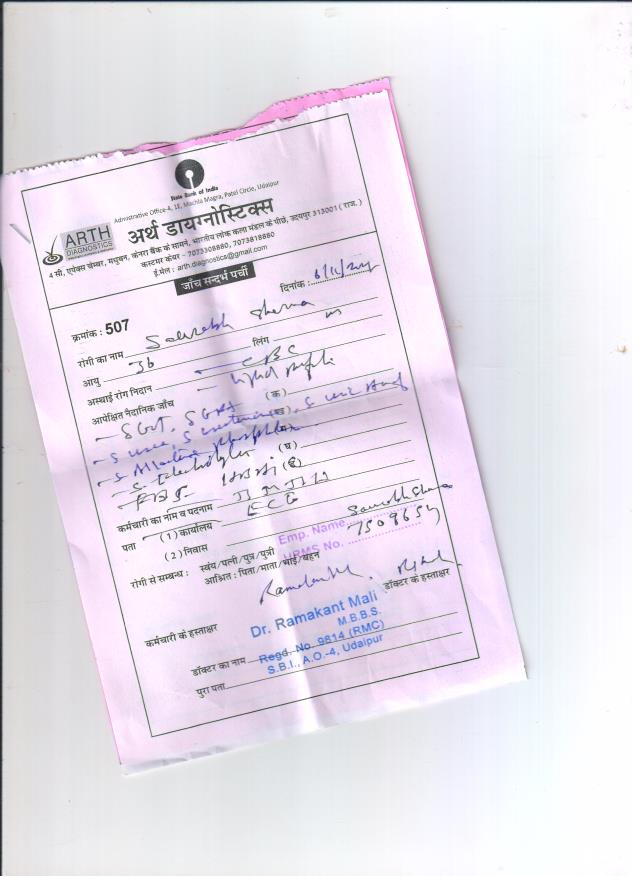 State Bank of India
Admistrative Office-4, 1E, Machla Magra, Patel Circle, Udaipur
ARTH
DIAGNOSTICS
अर्थ डायग्नोस्टिक्स
4 सी, एपेक्स चेम्बर, मधुबन, केनरा बैंक के सामने, भारतीय लोक कला मंडल के पीछे, उदयपुर 313001 ( राज. )
कस्टमर केयर - 7073308880, 7073818880
ई.मेल : arth.diagnostics@gmail.com
जाँच सन्दर्भ पर्ची
दिनांक :
क्रमांक : 507
रोगी का नाम Saurabh Sharma
आयु 36 लिंग m
अस्थाई रोग निदान - CBC
आपेक्षित नैदानिक जाँच - Lipid
(क)
- SGOT, SGPT
- S urea, S creatinine, S uric Acid
- S Alkaline
(घ)
- S. Electrolyte
- FBS HbA1c
कर्मचारी का नाम व पदनाम
पता (1) कार्यालय ECG
(2) निवास
Emp. Name Saurabh Sharma
HRMS No. 7509654
रोगी से सम्बन्ध : स्वंय/पत्नी/पुत्र/पुत्री
आश्रित : पिता/माता/भाई/बहन
कर्मचारी के हस्ताक्षर डॉक्टर के हस्ताक्षर
Dr. Ramakant Mali
M.B.B.S.
डॉक्टर का नाम Regd. No. 9814 (RMC)
S.B.I., A.O.-4, Udaipur
पुरा पता